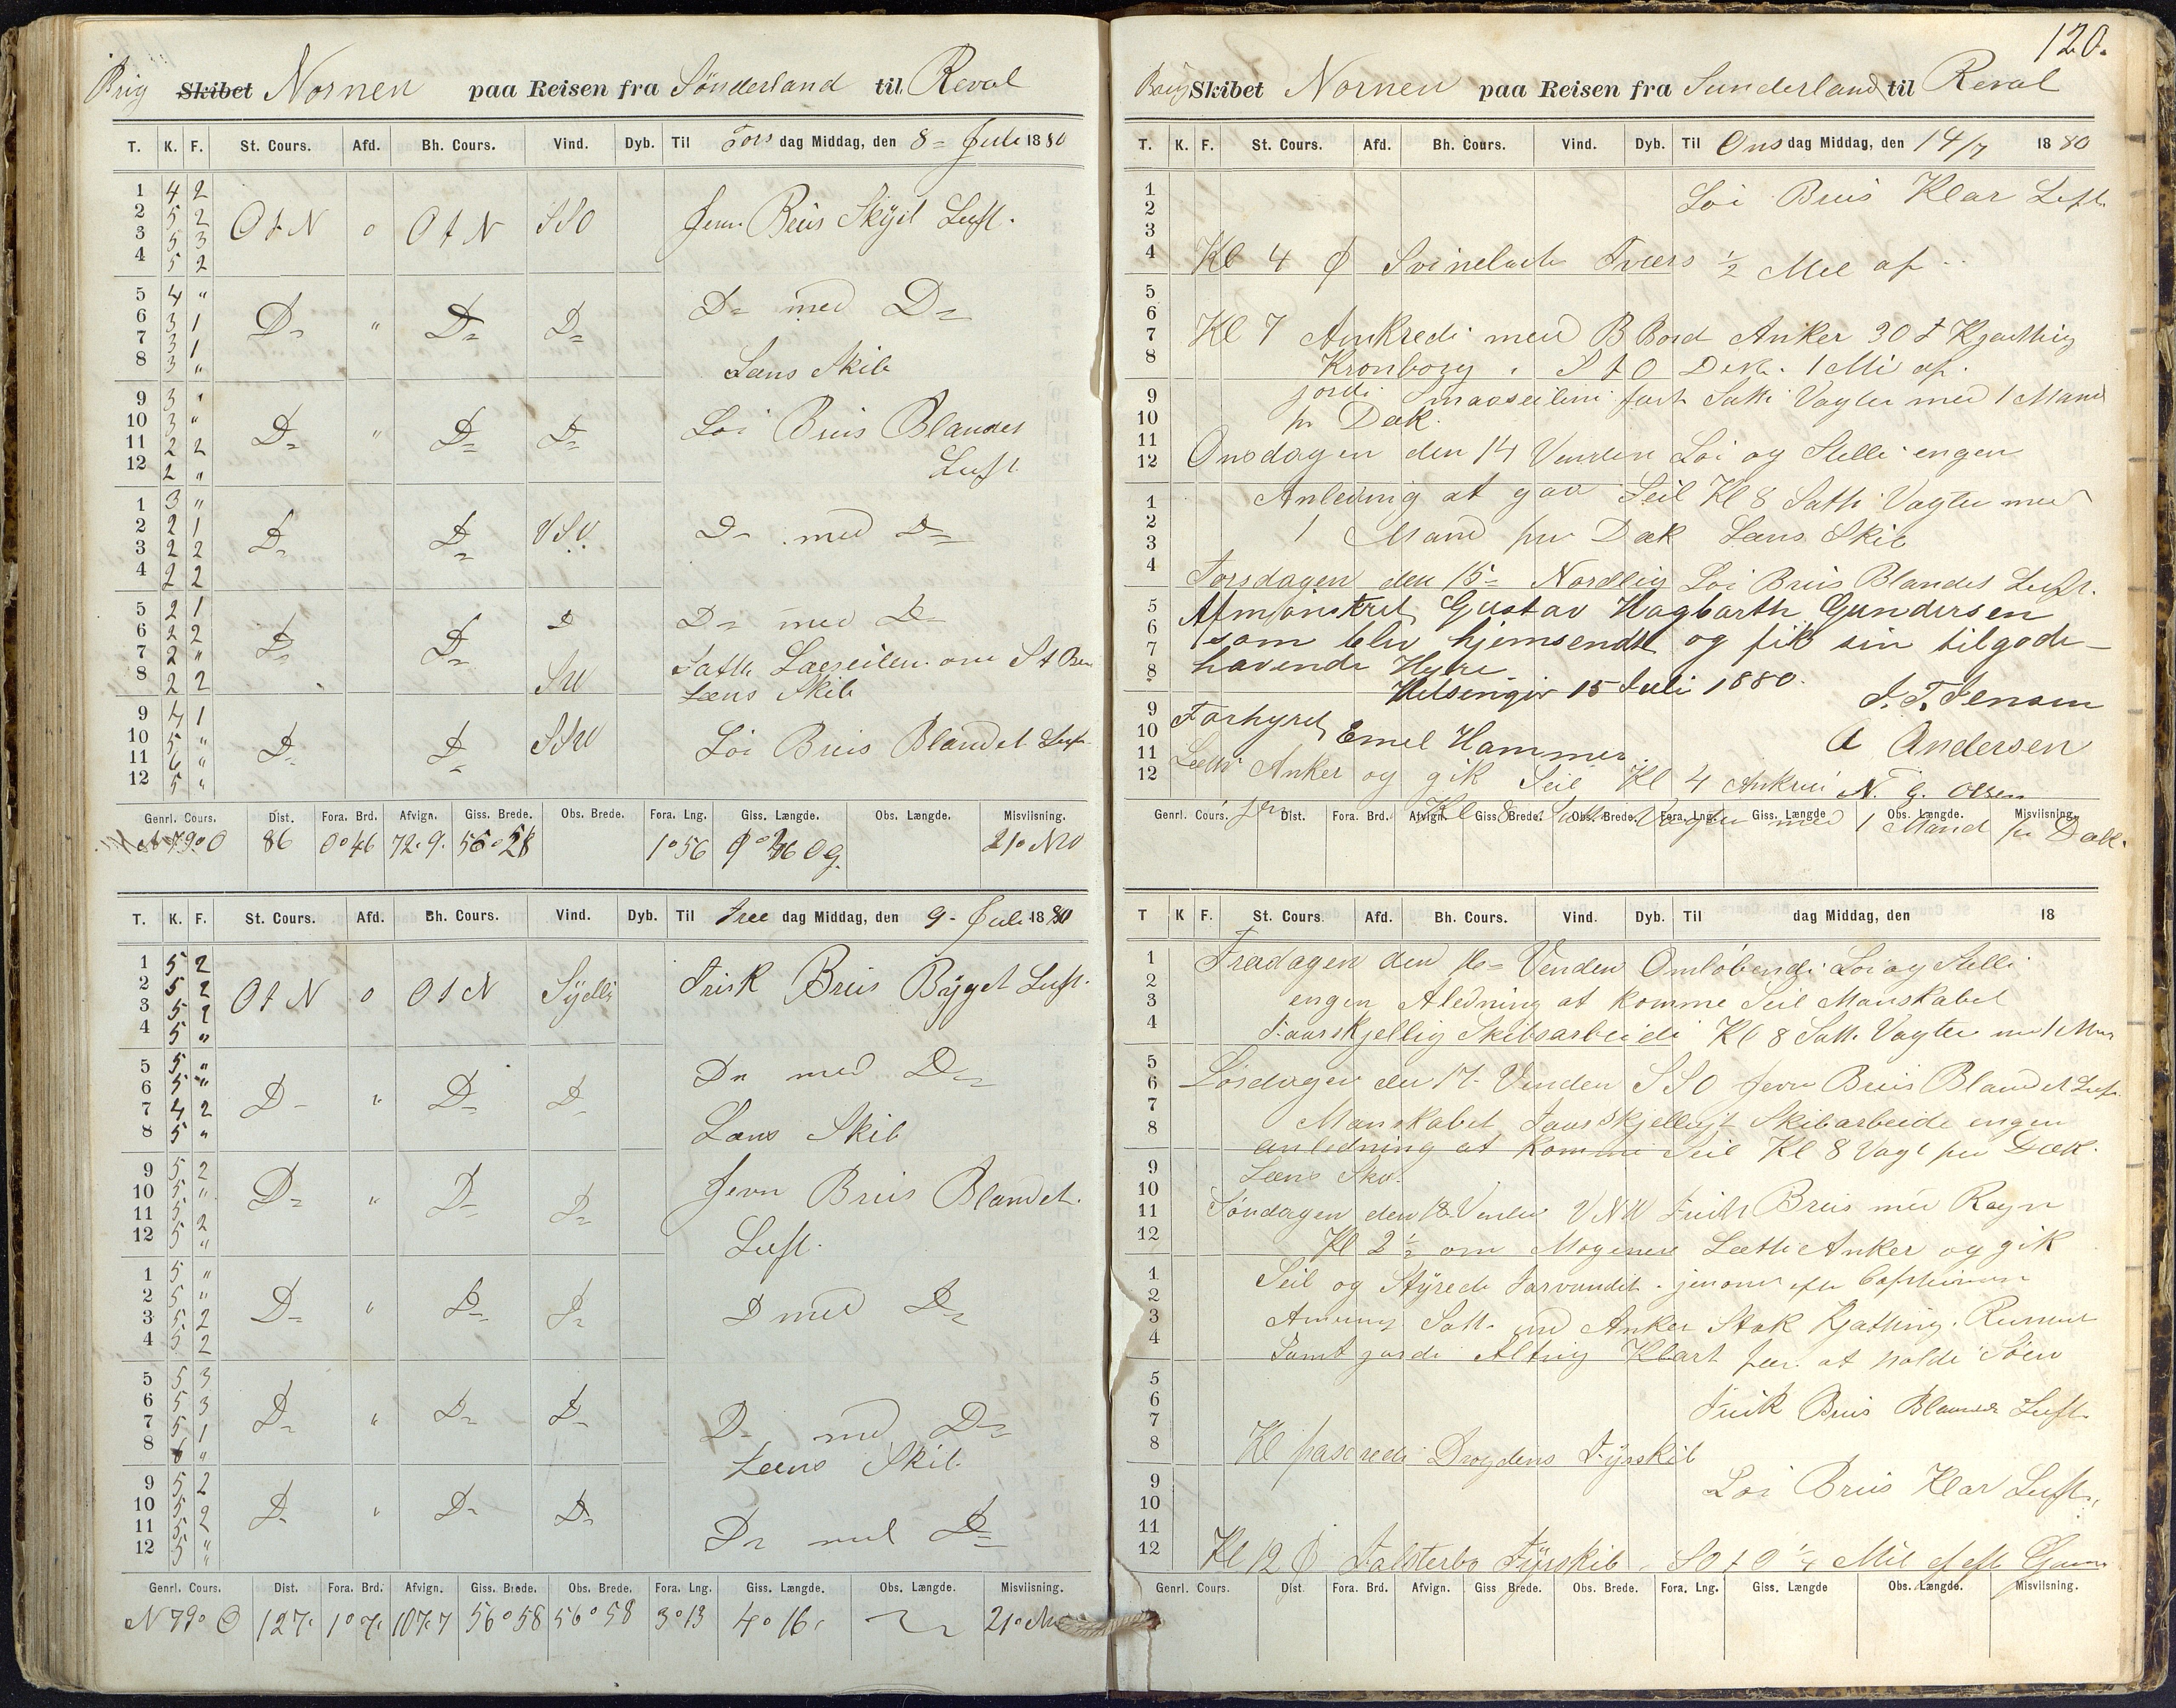 Brig Skibet Nornen paa Reisen fra Sönderland til Reval
T. K. F. St. Cours. Afd. Bh. Cours. Vind. Dyb. Til Tors dag Middag, den 8= Juli 1880
1 4 2
2 5 2 O t N o O t N SSO Jevn Brüs Skÿet Luft.
3 5 3
4 5 2
5 4 "
6 3 1 D= " D= D= D= med D=
7 3 1
8 3 " Læns Skib
9 3 "
10 3 " D= " D= D= Löi Brüs Blandet
11 2 2
12 2 " Luft
1 3 "
2 2 1 D= D= VSV D= med D=
3 2 2
4 2 2
5 2 1 D= med D=
6 2 2 D= D= D
7 2 " Satte Læseilene om St B
8 2 2 SW Læns Skib
9 4 1
10 5 " D= D= SSW Löi Brüs Blandet Luft
11 6 "
12 5 "
Genrl. Cours. Dist. Fora. Brd. Afvign. Giss. Brede. Obs. Brede. Fora. Lng. Giss. Længde. Obs. Længde. Misviisning.
N 79° O 86 0°46 72.9. 56°58 1°56 Og. 21° NW
T. K. F. St. Cours. Afd. Bh. Cours. Vind. Dyb. Til Fre dag Middag, den 9- Juli 1880
1 5 2
2 5 2 O t N o O t N Sÿdlig Frisk Brüs Bÿget Luft.
3 5 2
4 5 "
5 5 "
6 5 " D= " D= D= Dn med D=
7 4 2
8 5 " Læns Skib
9 5 2
10 5 " D= " D= D= Jevn Brüs Blandet.
11 5 2
12 5 " Luft.
1 5 "
2 5 " D= " D= D= D med D=
3 5 2
4 5 2
5 5 3
6 5 3 D= " D= D= D= med D=
7 5 1
8 6 " Læns Skib
9 5 2
10 5 2 D= " D= D=
11 5 2 D= med D=
12 5 "
Genrl. Cours. Dist. Fora. Brd. Afvign. Giss. Brede. Obs. Brede. Fora. Lng. Giss. Længde. Obs. Længde. Misviisning.
N 79° O 127. 1°7. 107.7 56°58 56°58 3°13 4°16. 21° NW
120.
Brig Skibet Nornen paa Reisen fra Sunderland til Reval
T. K. F. St. Cours. Afd. Bh. Cours. Vind. Dyb. Til Ons dag Middag, den 14/7 1880
1 Löi Brüs Klar Luft
2
3
4 Kl 4 Svinebade Tvers ½ Mil af
5
6
7 Kl 7 Ankrede med B Bord Anker 30 f Kjætting
8 Kronborg S t O Dist. 1 Mi af.
9 jorde Smaaseilene fast Satte Vagter med 1 Mand
10 pr Dæk.
11 Onsdagen den 14 Vinden Löi og Stille engen
12
1 Anledning at gaa Seil Kl 8 Satte Vagter med
2 1 Mand pr Dæk Læns Skib
3
4 Torsdagen den 15= Nordlig Löi Brüs Blandet Luft.
5 Afmønstret Gustav Hagbarth Gundersen
6 som blev hjemsendt og fik sin tilgode-
7
8 havende Hyre
Helsingør 15 Juli 1880. J. T. Jensen
9 Forhyret Emel Hammer A Andersen
10
11 Lætte Anker og gik Seil Kl 4 Ankrede N. G. Olsen
12 jen Kl 8 Satte Vagter med 1 Mand pr Dæk.
Genrl. Cours. Dist. Fora. Brd. Afvign. Giss. Brede. Obs. Brede. Fora. Lng. Giss. Længde Obs. Længde. Misviisning.
T K F. St. Cours. Afd. Bh. Cours. Vind. Dyb. Til dag Middag, den 18
1 Fredagen den 16= Vinden Omlöbende Löi og Stelle
2 engen Aledning at komme Seil Manskabet
3
4 Faarskjellig Skibsarbeide Kl 8 Satte Vagter me 1 Man
5
6 Lösdagen den 17- Vinden SSO Jevn Brüs Blandet Luft
7
8 Manskabet Faarskjelligt Skibarbeide engen
anledning at komme Seil Kl 8 Vagt pr Dæk.
9 Læns Skib.
10
11 Söndagen den 18 Vinden VNW Frisk Brüs med Regn
12 Kl 2½ om Mogenen Lætte Anker og gik
1 Seil og Stÿrede Farvandet jenom efter Captainen
2
3 Anvisning Satte ned Anker Stok Kjætting
4 Samt jorde Alting Klart for at holde Söen
5
6 Frisk Brüs Blandet Luft
7
8 Kl paserede Drogdens Fÿrskib
9 Löi Brüs Klar Luft
10
11
12 Kl 12 Falsterbo Fÿrskib SO t O ¼ Mil af
Genrl. Cours. Dist Fora. Brd. Afvign. Giss Brede. Obs. Brede. Fora. Lng. Giss. Længde Obs. Længde. Misviisning.